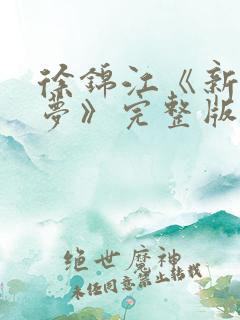 徐锦江《新
梦》完整版
绝世魔神
未经同意禁止转载